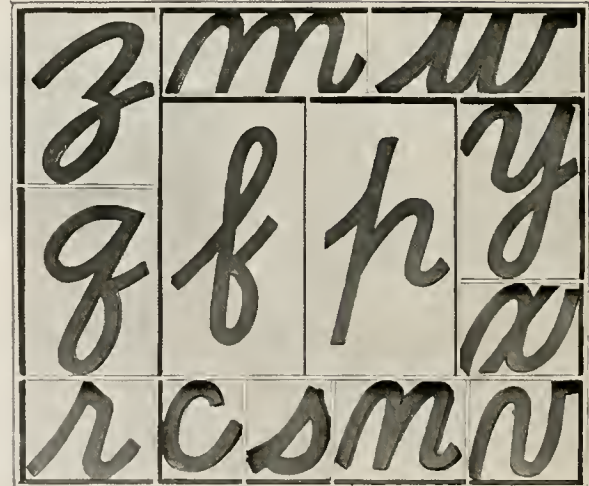 z m w
q f p y
x
r c s n v